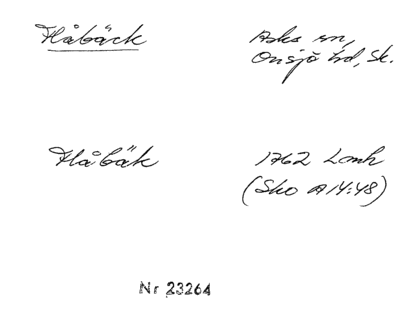 Håbäck
Asks sn,
Onsjö hd, Sk.
Håbäk
1762 Lmh
(Sko A 14:48)
Nr 23264